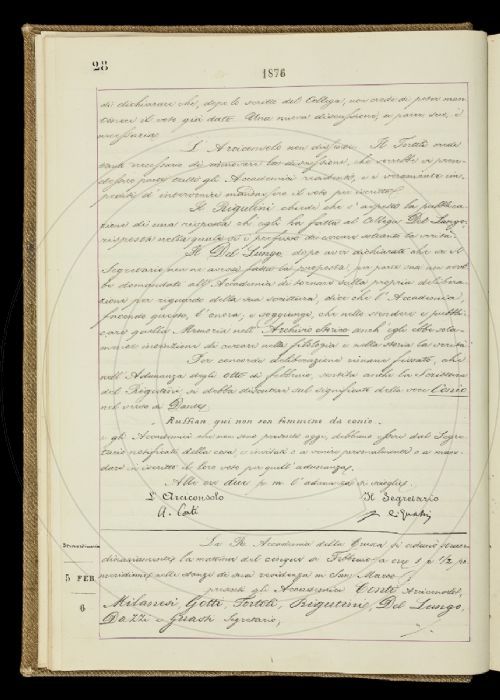 28
1876
di dichiarare che, dopo lo scritto del Collega, non crede di poter man-
tenere il voto già dato. Una nuova discussione, a parer suo, è
necessaria.
L'Arciconsolo non dissente. Il Tortoli crede
necessario di rinnovare la discussione, che vorrebbe vi pren-
dessero parte tutti gli Accademici residenti, e i veramente im-
pediti d'intervenire mandassero il voto per iscritto.
Il Rigutini chiede che s'aspetti la pubblica-
zione di una risposta ch'egli ha fatta al Collega Del Lungo,
risposta nella quale si è prefisso di cercare soltanto la verità.
Il Del Lungo, dopo aver dichiarato che se il
Segretario non ne avesse fatta la proposta, da parte sua non avreb-
be domandato all'Accademia di tornare sulla propria delibera-
zione per riguardo della sua scrittura, dice che l'Accademia,
facendo questo, l'onora; e soggiunge, che nello scrivere e pubbli-
care quella Memoria nell'Archivio Storico anch'egli ebbe sola-
mente intenzione di cercare nella filologia e nella storia la verità.
Per concorde deliberazione rimane fissato, che
nell'Adunanza degli otto di febbraio, sentita anche la scrittura
del Rigutini si debba discutere sul significato della voce Conio
nel verso di Dante,
Ruffian qui non son femmine da conio.
e gli Accademici che non son presenti oggi, debbano essere dal Segre-
tario notificati della cosa, e invitati o a venire personalmente o a man-
dare in iscritto il loro voto per quell'adunanza.
Alle ore dieci p. m. l'adunanza si scioglie.
L'Arciconsolo Il Segretario
A. Conti C. Guasti
Straordinaria
La R. Accademia della Crusca si aduna straor-
dinariamente la mattina del cinque di Febbraio a ore 1 e 1/2 po-
meridiane nelle stanze di sua residenza in San Marco
5 FEB.
6
presenti gli Accademici Conti Arciconsolo,
Milanesi Gotti, Tortoli, Rigutini, Del Lungo,
Dazzi e Guasti Segretario,